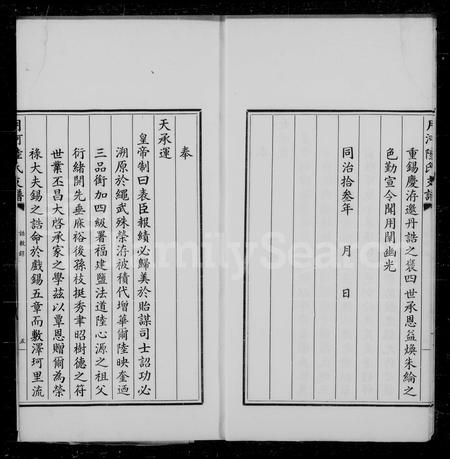 重錫慶洊邀丹誥之褒四世承恩益煥朱綸之
色勤宣令聞用闡幽光
同治拾叁年　月　日
奉
天承運
皇帝制曰表臣報績必歸美於貽謀司士詔功必
溯原於繩武殊榮洊被積代增華爾陸映奎迺
三品銜加四級署福建鹽法道陸心源之祖父
衍緒開先垂庥裕後孫枝挺秀聿昭樹德之符
世業丕昌大啓承家之學茲以覃恩贈爾為榮
祿大夫錫之誥命於戲錫五章而敷澤珂里流
誥敕錄
五
FamilySearch